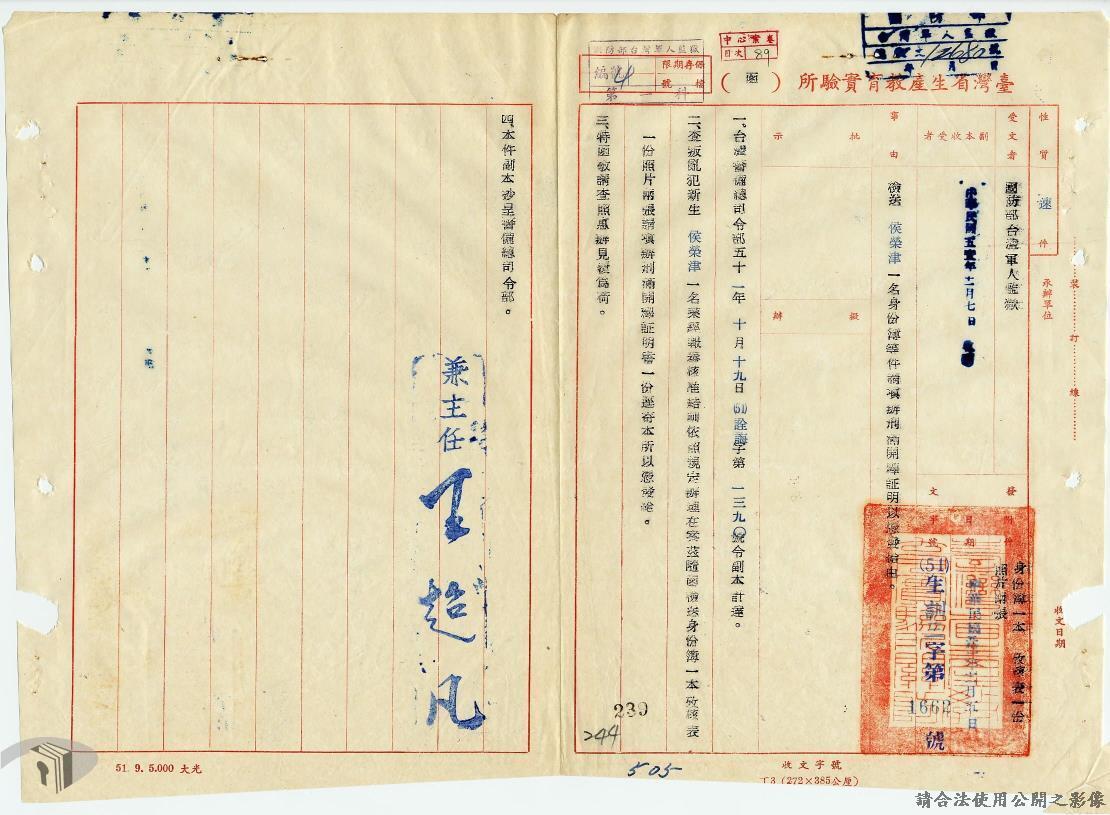 臺灣省生產教育實驗所（函）
國防部台灣軍人監獄
第一科
保存期限
檔號
中心案卷
目次 89
性質 速件
受文者 國防部台灣軍人監獄
副本收受者
中華民國五壹年十二月七日
事由 檢送 侯榮津 一名身份簿等件請填辦刑滿開釋証明以憑發給由。
批示
擬辦
承辦單位
裝訂線
收文日期
發文
附件 身份簿一本 考核表一份
照片兩張
日期
字號 (51)生訓字第 1662 號
一、台灣警備總司令部五十一年 十月 十九日(51)詮誨字第 一三九〇號令副本計達。
二、查叛亂犯新生 侯榮津 一名業經報奉核准結訓依照規定辦理在案茲隨函檢送身份簿一本考核表
一份照片兩張請填辦刑滿開釋証明書一份逕寄本所以憑發給。
三、特函敬請查照惠辦見復為荷。
四、本件副本抄呈警備總司令部。
兼主任 王超凡
239
244
505
收文字號
T3 (272×385公厘)
51. 9. 5.000 大光
請合法使用公開之影像